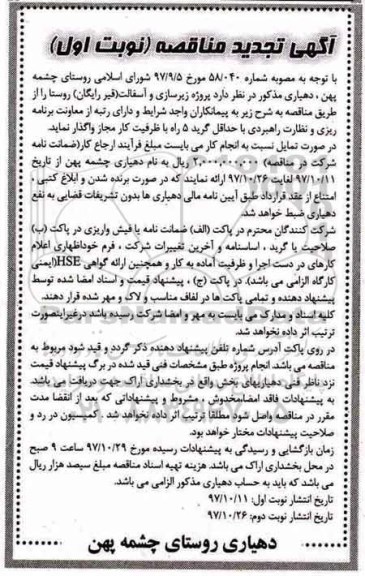 آگهی تجدید مناقصه (نوبت اول)
با توجه به مصوبه شماره ۵۸/۰۴۰ مورخ ۹۷/۹/۵ شورای اسلامی روستای چشمه
پهن ، دهیاری مذکور در نظر دارد پروژه زیرسازی و آسفالت(قیر رایگان) روستا را از
طریق مناقصه به شرح زیر به پیمانکاران واجد شرایط و دارای رتبه از معاونت برنامه
ریزی و نظارت راهبردی با حداقل گرید ۵ راه با ظرفیت کار مجاز واگذار نماید.
در صورت تمایل نسبت به انجام کار می بایست مبلغ فرآیند ارجاع کار(ضمانت نامه
شرکت در مناقصه) ۲۰۰۰،۰۰۰،۰۰۰ ریال به نام دهیاری چشمه پهن از تاریخ
۹۷/۱۰/۱۱ لغایت ۹۷/۱۰/۲۶ ارائه نمایند که در صورت برنده شدن و ابلاغ کتبی ،
امتناع از عقد قرارداد طبق آیین نامه مالی دهیاری ها بدون تشریفات قضایی به نفع
دهیاری ضبط خواهد شد.
شرکت کنندگان محترم در پاکت (الف) ضمانت نامه یا فیش واریزی در پاکت (ب)
صلاحیت یا گرید ، اساسنامه و آخرین تغییرات شرکت ، فرم خوداظهاری اعلام
کارهای در دست اجرا و ظرفیت آماده به کار و همچنین ارائه گواهی HSE(ایمنی
کارگاه الزامی می باشد). در پاکت (ج) ، پیشنهاد قیمت و اسناد امضا شده توسط
پیشنهاد دهنده و تمامی پاکت ها در لفاف مناسب و لاک و مهر شده قرار دهند.
کلیه اسناد و مدارک می بایست به مهر و امضا شرکت رسیده باشد درغیراینصورت
ترتیب اثر داده نخواهد شد.
در روی پاکت آدرس شماره تلفن پیشنهاد دهنده، ذکر گردد و قید شود مربوط به
مناقصه می باشد. انجام پروژه طبق مشخصات فنی قید شده در برگ پیشنهاد قیمت
نزد ناظر فنی دهیاریهای بخش واقع در بخشداری اراک جهت دریافت می باشد.
به پیشنهادات فاقد امضا،مخدوش ، مشروط و پیشنهاداتی که بعد از انقضا مدت
مقرر در مناقصه واصل شود مطلقا ترتیب اثر داده نخواهد شد . کمیسیون در رد و
صلاحیت پیشنهادات مختار خواهد بود.
زمان بازگشایی و رسیدگی به پیشنهادات رسیده مورخ ۹۷/۱۰/۲۹ ساعت ۹ صبح
در محل بخشداری اراک می باشد. هزینه تهیه اسناد مناقصه مبلغ سیصد هزار ریال
می باشد که باید به حساب دهیاری مذکور الزامی می باشد.
تاریخ انتشار نوبت اول: ۹۷/۱۰/۱۱
تاریخ انتشار نوبت دوم: ۹۷/۱۰/۲۶
دهیاری روستای چشمه پهن